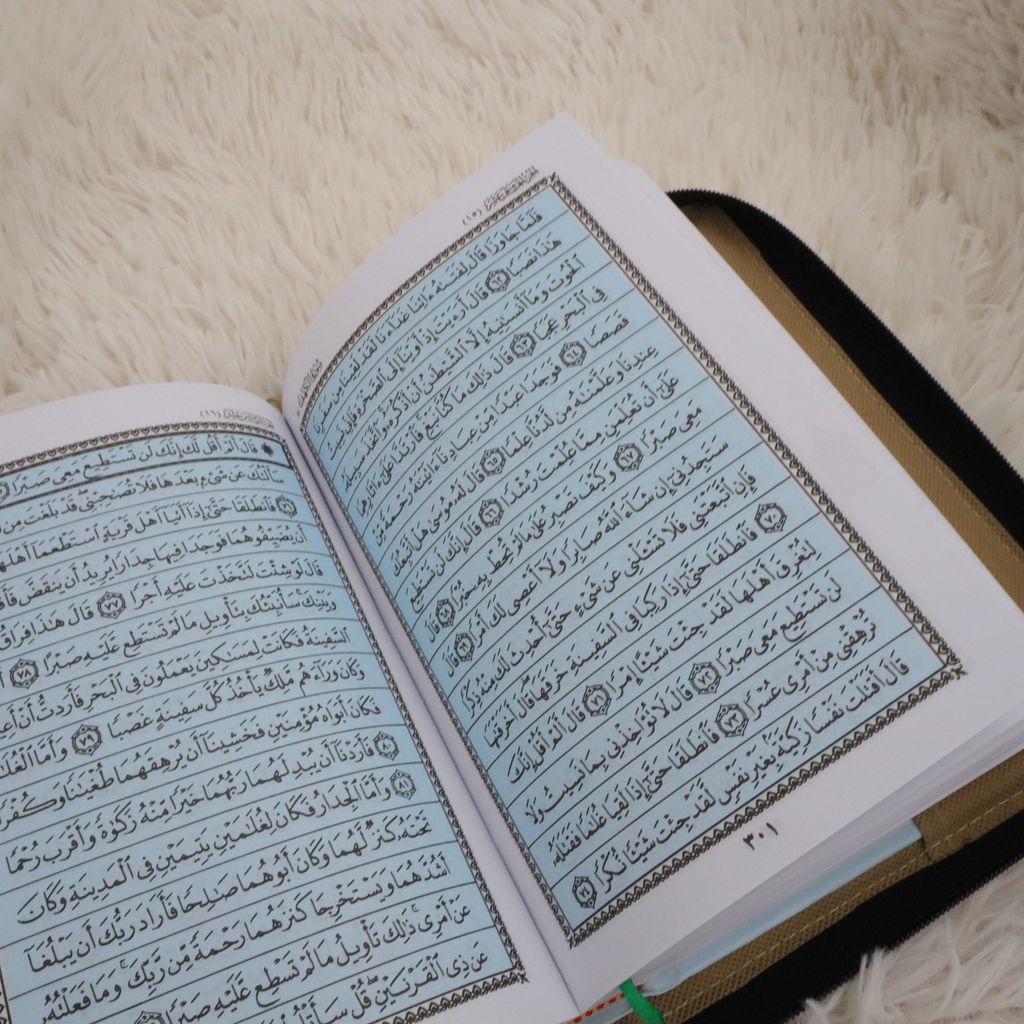 (١٥)
فَلَمَّا جَاوَزَا قَالَ لِفَتَىٰهُ ءَاتِنَا غَدَآءَنَا لَقَدْ لَقِينَا مِن سَفَرِنَا
هَٰذَا نَصَبًا ٦٢ قَالَ أَرَءَيْتَ إِذْ أَوَيْنَآ إِلَى ٱلصَّخْرَةِ فَإِنِّى نَسِيتُ
ٱلْحُوتَ وَمَآ أَنسَىٰنِيهُ إِلَّا ٱلشَّيْطَٰنُ أَنْ أَذْكُرَهُۥ وَٱتَّخَذَ سَبِيلَهُۥ
فِى ٱلْبَحْرِ عَجَبًا ٦٣ قَالَ ذَٰلِكَ مَا كُنَّا نَبْغِ فَٱرْتَدَّا عَلَىٰٓ ءَاثَارِهِمَا
قَصَصًا ٦٤ فَوَجَدَا عَبْدًا مِّنْ عِبَادِنَآ ءَاتَيْنَٰهُ رَحْمَةً مِّنْ
عِندِنَا وَعَلَّمْنَٰهُ مِن لَّدُنَّا عِلْمًا ٦٥ قَالَ لَهُۥ مُوسَىٰ هَلْ أَتَّبِعُكَ
عَلَىٰٓ أَن تُعَلِّمَنِ مِمَّا عُلِّمْتَ رُشْدًا ٦٦ قَالَ إِنَّكَ لَن تَسْتَطِيعَ
مَعِىَ صَبْرًا ٦٧ وَكَيْفَ تَصْبِرُ عَلَىٰ مَا لَمْ تُحِطْ بِهِۦ خُبْرًا ٦٨ قَالَ
سَتَجِدُنِىٓ إِن شَآءَ ٱللَّهُ صَابِرًا وَلَآ أَعْصِى لَكَ أَمْرًا ٦٩ قَالَ
فَإِنِ ٱتَّبَعْتَنِى فَلَا تَسْـَٔلْنِى عَن شَىْءٍ حَتَّىٰٓ أُحْدِثَ لَكَ مِنْهُ ذِكْرًا
٧٠ فَٱنطَلَقَا حَتَّىٰٓ إِذَا رَكِبَا فِى ٱلسَّفِينَةِ خَرَقَهَا قَالَ أَخَرَقْتَهَا
لِتُغْرِقَ أَهْلَهَا لَقَدْ جِئْتَ شَيْـًٔا إِمْرًا ٧١ قَالَ أَلَمْ أَقُلْ إِنَّكَ
لَن تَسْتَطِيعَ مَعِىَ صَبْرًا ٧٢ قَالَ لَا تُؤَاخِذْنِى بِمَا نَسِيتُ وَلَا
تُرْهِقْنِى مِنْ أَمْرِى عُسْرًا ٧٣ فَٱنطَلَقَا حَتَّىٰٓ إِذَا لَقِيَا غُلَٰمًا فَقَتَلَهُۥ
قَالَ أَقَتَلْتَ نَفْسًا زَكِيَّةًۢ بِغَيْرِ نَفْسٍ لَّقَدْ جِئْتَ شَيْـًٔا نُّكْرًا ٧٤
٣٠١
(١٦)
قَالَ أَلَمْ أَقُل لَّكَ إِنَّكَ لَن تَسْتَطِيعَ مَعِىَ صَبْرًا
سَأَلْتُكَ عَن شَىْءٍۭ بَعْدَهَا فَلَا تُصَٰحِبْنِى قَدْ بَلَغْتَ مِن
٧٦ فَٱنطَلَقَا حَتَّىٰٓ إِذَآ أَتَيَآ أَهْلَ قَرْيَةٍ ٱسْتَطْعَمَآ أَهْلَهَا
أَن يُضَيِّفُوهُمَا فَوَجَدَا فِيهَا جِدَارًا يُرِيدُ أَن يَنقَضَّ
قَالَ لَوْ شِئْتَ لَتَّخَذْتَ عَلَيْهِ أَجْرًا ٧٧ قَالَ هَٰذَا فِرَاقُ
وَبَيْنِكَ سَأُنَبِّئُكَ بِتَأْوِيلِ مَا لَمْ تَسْتَطِع عَّلَيْهِ صَبْرًا ٧٨
ٱلسَّفِينَةُ فَكَانَتْ لِمَسَٰكِينَ يَعْمَلُونَ فِى ٱلْبَحْرِ فَأَرَدتُّ أَنْ
وَكَانَ وَرَآءَهُم مَّلِكٌ يَأْخُذُ كُلَّ سَفِينَةٍ غَصْبًا ٧٩ وَأَمَّا
فَكَانَ أَبَوَاهُ مُؤْمِنَيْنِ فَخَشِينَآ أَن يُرْهِقَهُمَا طُغْيَٰنًا وَكُفْرًا
٨٠ فَأَرَدْنَآ أَن يُبْدِلَهُمَا رَبُّهُمَا خَيْرًا مِّنْهُ زَكَوٰةً وَأَقْرَبَ رُحْمًا
٨١ وَأَمَّا ٱلْجِدَارُ فَكَانَ لِغُلَٰمَيْنِ يَتِيمَيْنِ فِى ٱلْمَدِينَةِ وَكَانَ
تَحْتَهُۥ كَنزٌ لَّهُمَا وَكَانَ أَبُوهُمَا صَٰلِحًا فَأَرَادَ رَبُّكَ أَن يَبْلُغَآ
أَشُدَّهُمَا وَيَسْتَخْرِجَا كَنزَهُمَا رَحْمَةً مِّن رَّبِّكَ وَمَا فَعَلْتُهُۥ
عَنْ أَمْرِى ذَٰلِكَ تَأْوِيلُ مَا لَمْ تَسْطِع عَّلَيْهِ صَبْرًا
عَن ذِى ٱلْقَرْنَيْنِ قُلْ